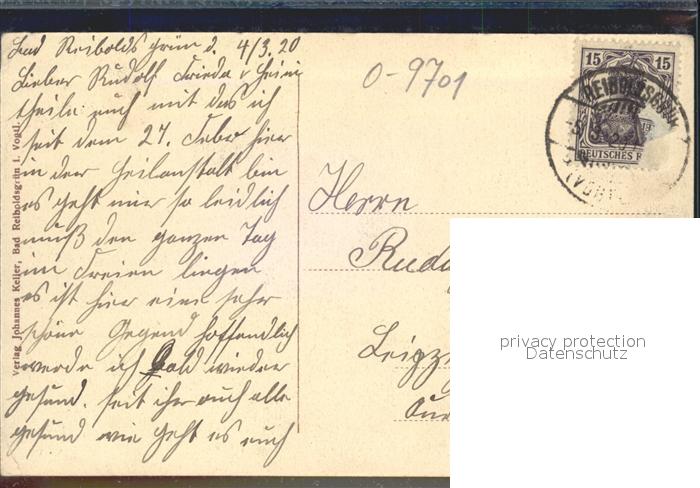 Bad Reiboldsgrün d. 4/3.20
Lieber Rudolf Frieda u Heini
theile euch mit das ich
seit dem 27. Febr hier
in der Heilanstalt bin
es geht mir so leidlich
muß den ganzen Tag
im Freien liegen
es ist hier eine sehr
schöne Gegend hoffendlich
werde ich bald wieder
gesund. seit ihr auch alle
gesund wie geht es euch
Verlag Johannes Keller, Bad Reiboldsgrün i. Vogtl.
O-9701
15 15
DEUTSCHES R
REIBOLDSGRÜN
Herrn
Rudo
Leipz
privacy protection
Datenschutz